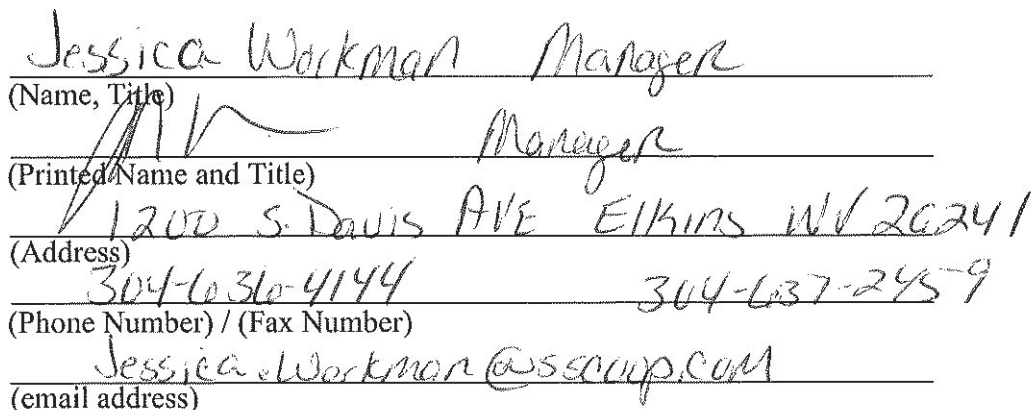 Jessica Workman Manager
(Name, Title)
Manager
(Printed Name and Title)
1200 S. Davis AVE Elkins WV 26241
(Address)
304-636-4144 304-637-2459
(Phone Number) / (Fax Number)
Jessica.Workman@sscoop.com
(email address)